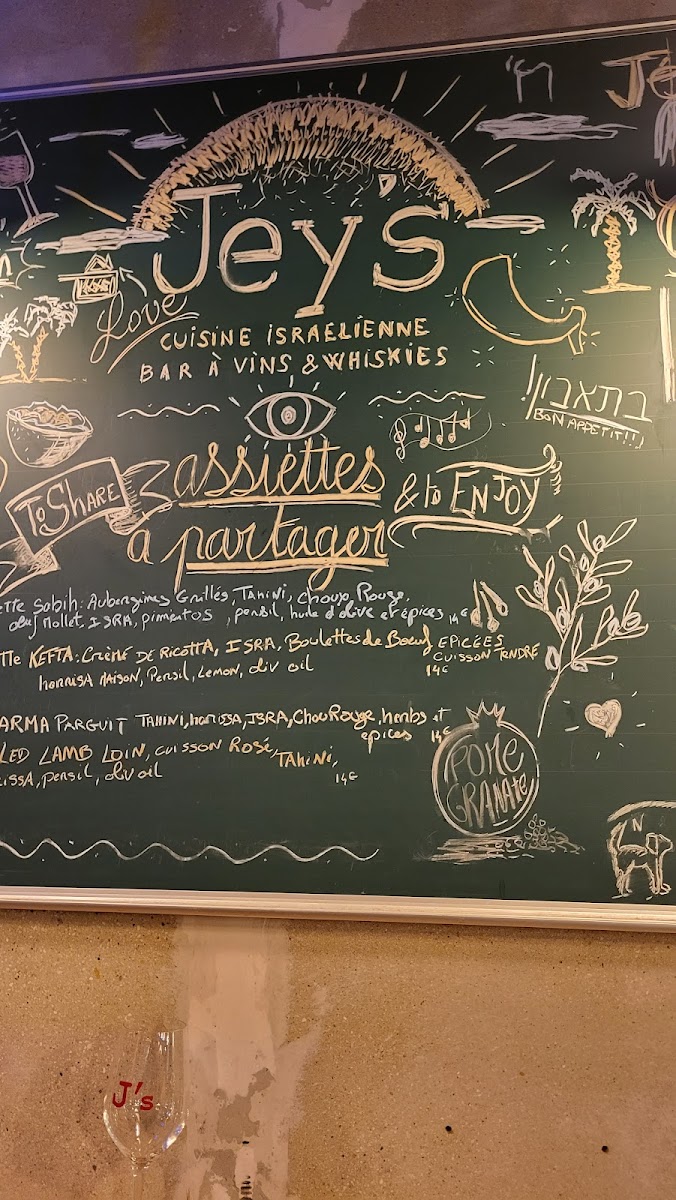 Jey's
Love
CUISINE ISRAELIENNE
BAR À VINS & WHISKIES
בתאבון!!
BON APPETIT!!!
To SHARE
assiettes
à partager
& to ENJOY
ette Sabih: Aubergines Grillés, Tahini, Choux Rouge,
œuf Mollet, ISRA, pimientos, persil, huile d'olive et épices 14€
tte KEFTA: Crème DE RICOTTA, ISRA, Boulettes de Bœuf EPICÉES
CUISSON TENDRE
harrisA MAISON, Persil, Lemon, oliv oil 14€
ARMA PARGUIT TAHINI, harissa, ISRA, Chou Rouge, herbs et
epices 14€
LED LAMB LOIN, CUISSON ROSÉ, TAHINI,
ISSA, persil, oliv oil 14€
POME
GRANAte
J's